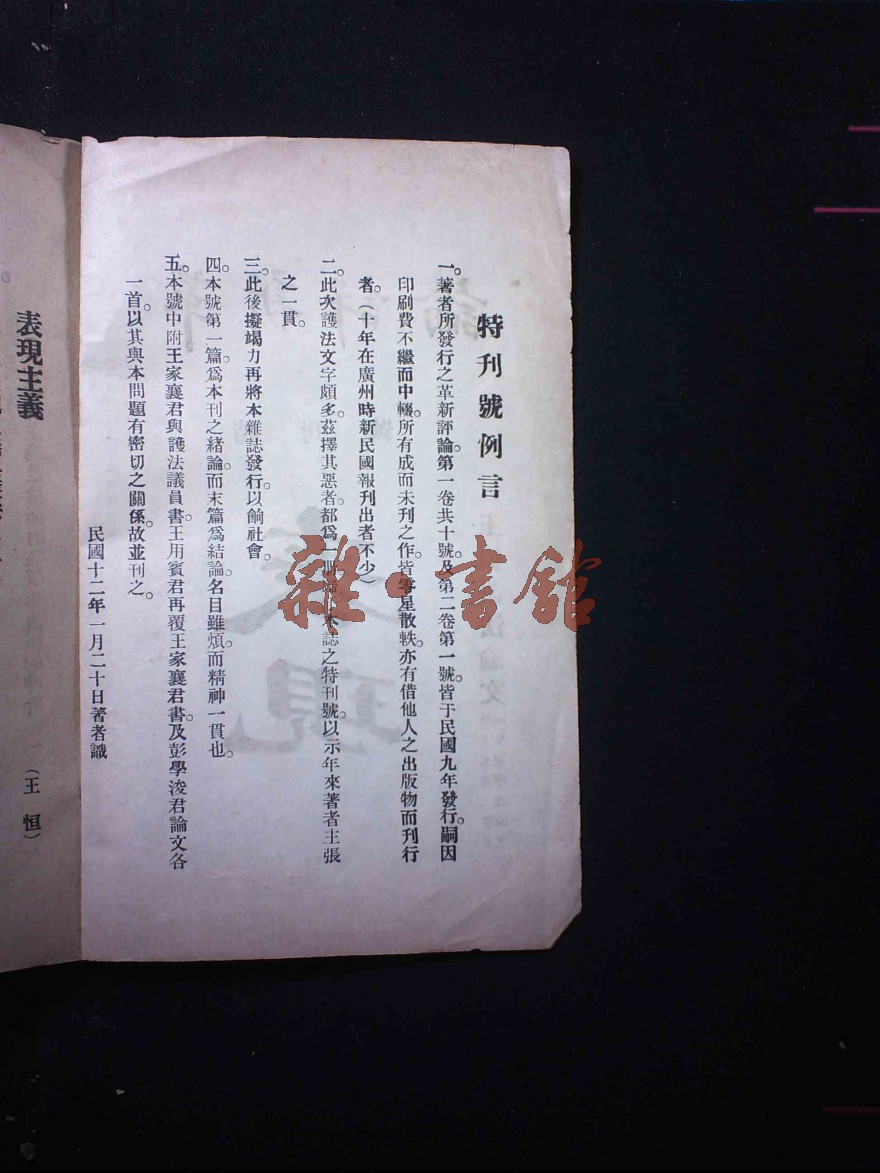 特刊號例言
一。著者所發行之革新評論。第一卷共十號及第二卷第一號。皆于民國九年發行。嗣因
印刷費不繼而中輟。所有成而未刊之作。皆零星散軼。亦有借他人之出版物而刊行
者（十年在廣州時新民國報刊出者不少）
二。此次護法文字頗多。茲擇其惡者都為一冊 本誌之特刊號。以示年來著者主張
之一貫。
三。此後擬竭力再將本雜誌發行。以餉社會。
四。本號第一篇為本刊之緒論。而末篇為結論。名目雖煩。而精神一貫也。
五。本號中附王家襄君與護法議員書。王用賓君再覆王家襄君書。及彭學浚君論文各
一首。以其與本問題有密切之關係。故並刊之。
民國十二年一月二十日著者識
表現主義
（王恒）
雜·書館